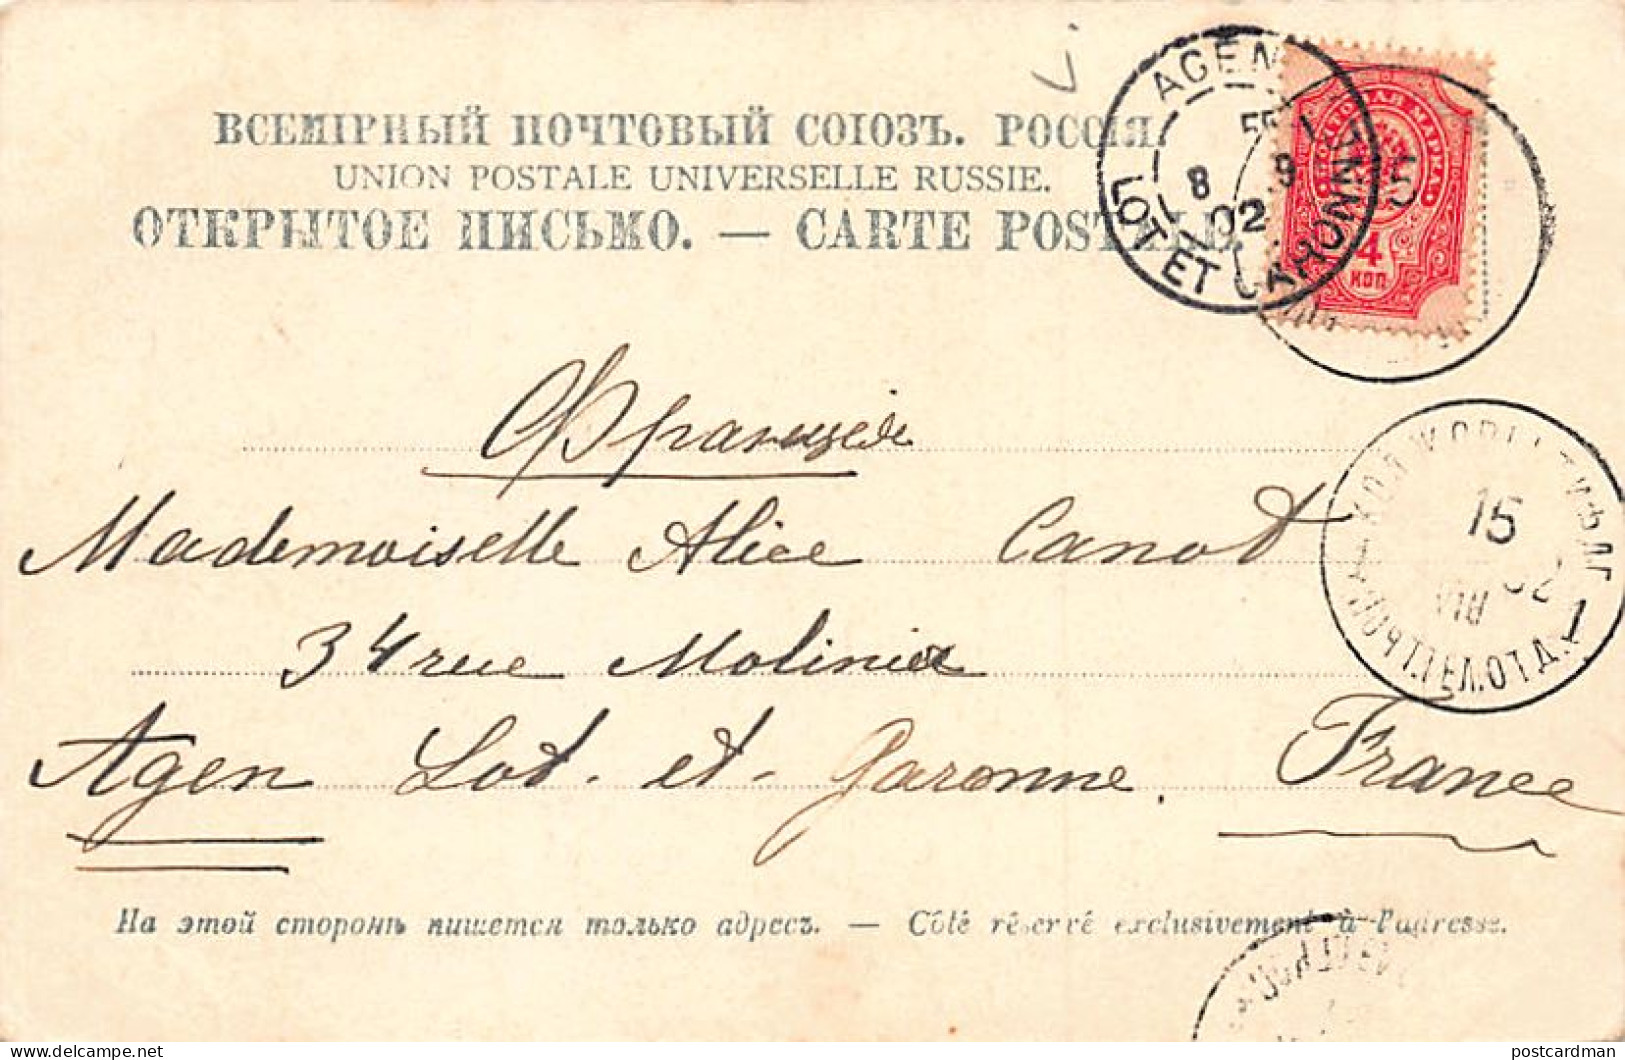 ВСЕМІРНЫЙ ПОЧТОВЫЙ СОЮЗЪ. РОССІЯ.
UNION POSTALE UNIVERSELLE RUSSIE.
ОТКРЫТОЕ ПИСЬМО. — CARTE POSTALE.
AGEN
8 9
02
LOT ET GARONNE
ПОЧТОВАЯ МАРКА
4
КОП
5
Франція
Mademoiselle Alice Canot
15
34 rue Molinié
1
Agen Lot-et-Garonne, France
На этой сторонѣ пишется только адресъ. — Côté réservé exclusivement à l'adresse.
postcardman